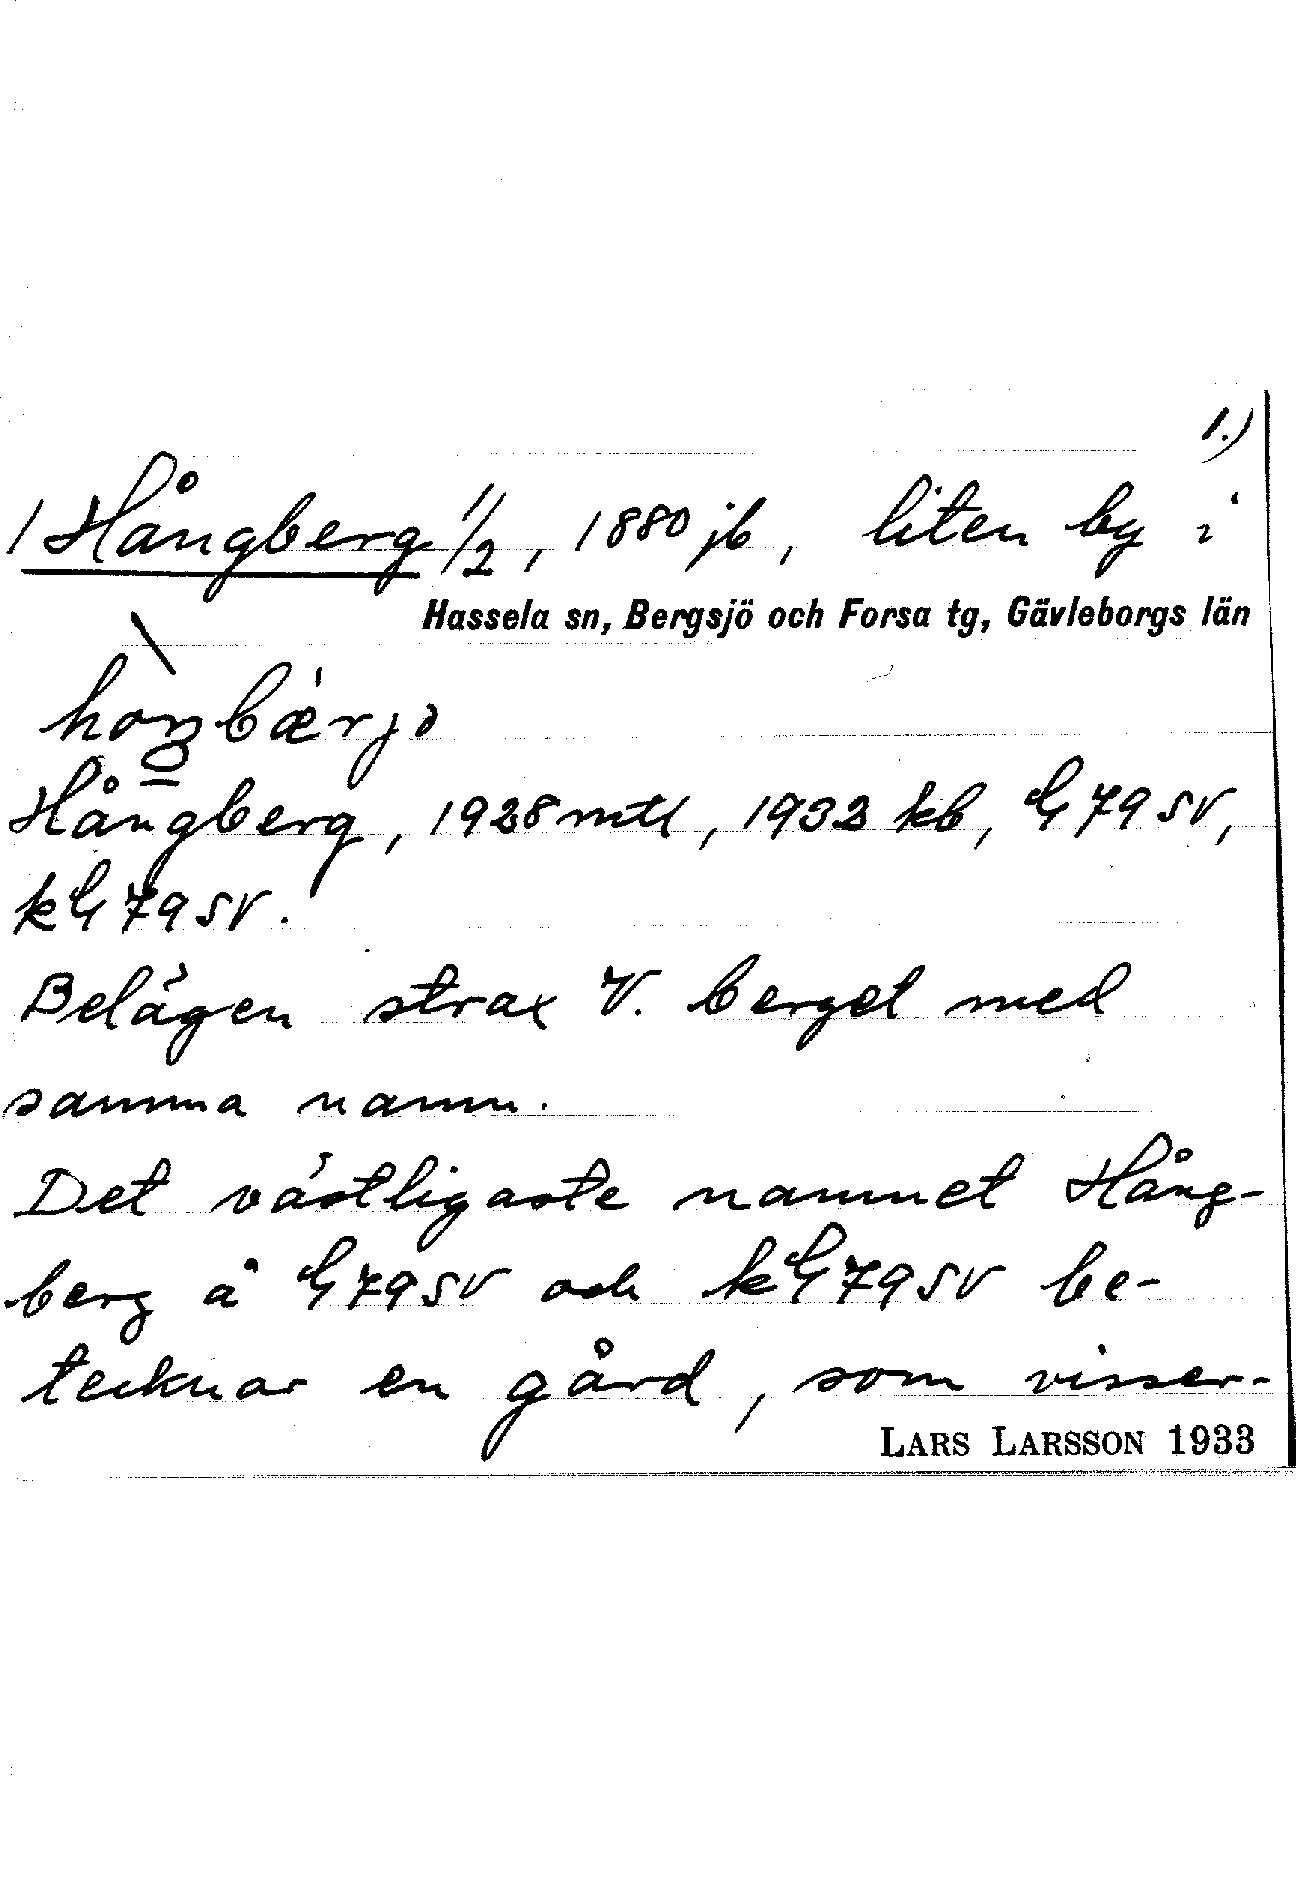 1.)
1 Hångberg 1/2, 1880 jb, liten by i
Hassela sn, Bergsjö och Forsa tg, Gävleborgs län
Hångberg, 1928 mtl, 1932 kb, G 79 SV,
kG 79 SV.
Belägen strax V. berget med
samma namn.
Det västligaste namnet Hång-
berg å G 79 SV och kG 79 SV be-
tecknar en gård, som visser-
LARS LARSSON 1933